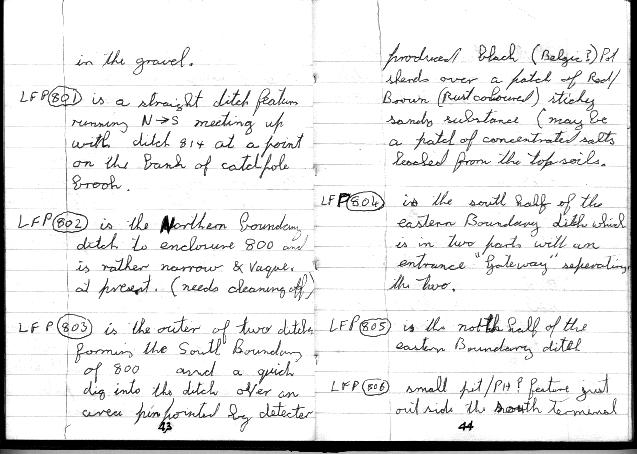 in the gravel.
LFP 801 is a straight ditch feature
running N→S meeting up
with ditch 814 at a point
on the bank of catchpole
brook.
LFP 802 is the Northern boundary
ditch to enclosure 800 and
is rather narrow & vague.
at present. (needs cleaning off)
LFP 803 is the outer of two ditches
forming the South Boundary
of 800 and a quick
dig into the ditch over an
area pinpointed by detecter
43
produced black (Belgic?) Pot
sherds over a patch of Red/
Brown (Rust coloured) sticky
sandy substance (may be
a patch of concentrated salts
leached from the top soils.
LFP 804 is the south half of the
eastern Boundary ditch which
is in two parts with an
entrance "Gateway" seperating
the two.
LFP 805 is the north half of the
eastern Boundary ditch
LFP 806 small pit/PH? feature just
outside the south terminal
44